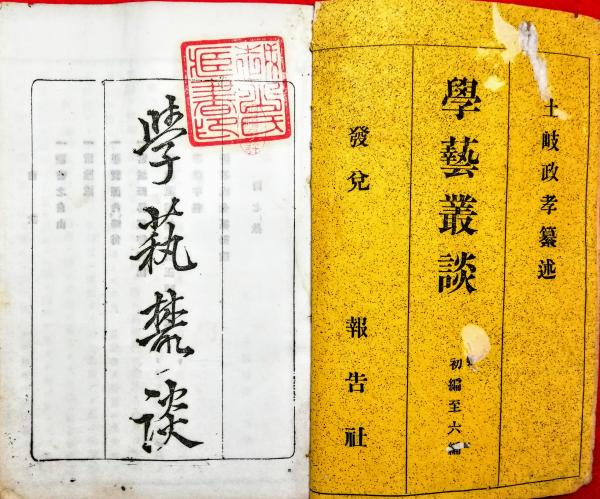 土岐政孝纂述
學藝叢談
初編至六編
發兌 報告社
學藝叢談